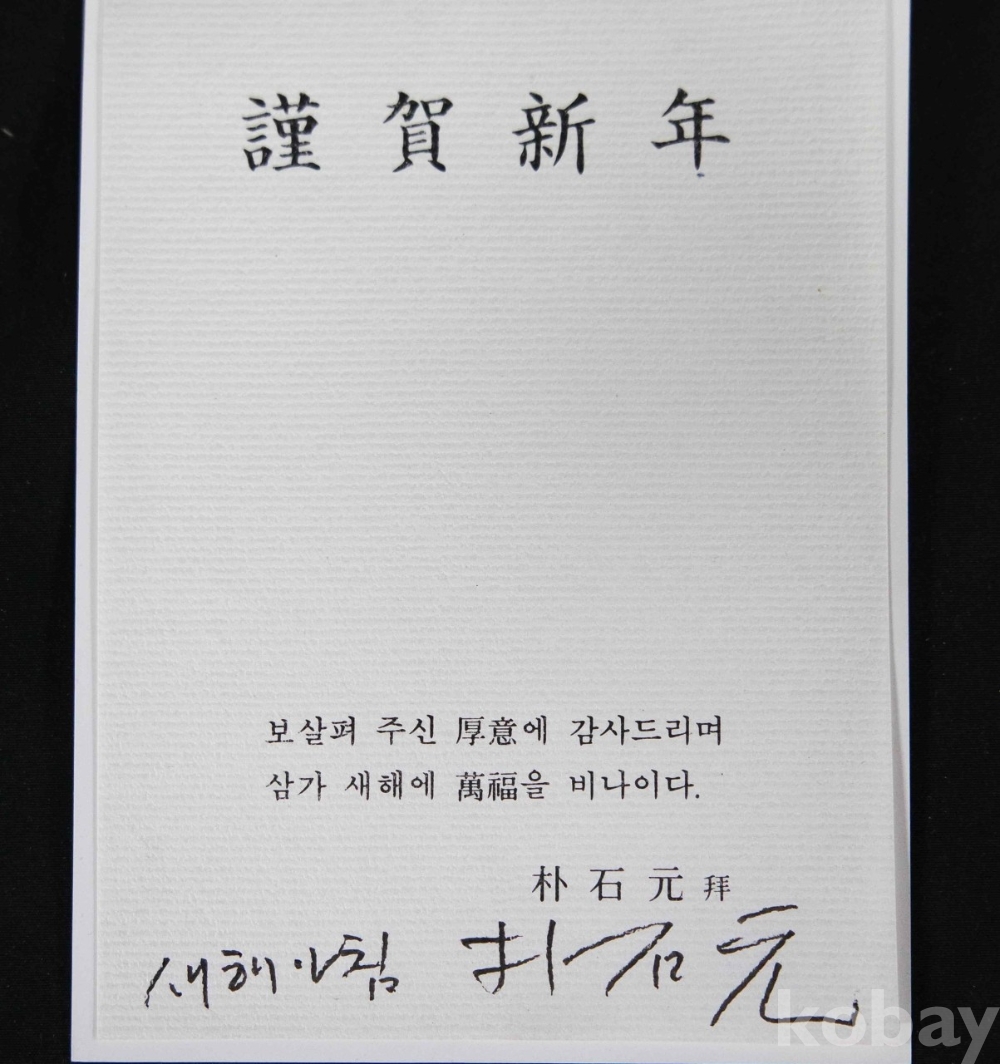 謹賀新年
보살펴 주신 厚意에 감사드리며
삼가 새해에 萬福을 비나이다.
朴石元 拜
새해아침 朴石元
kobay